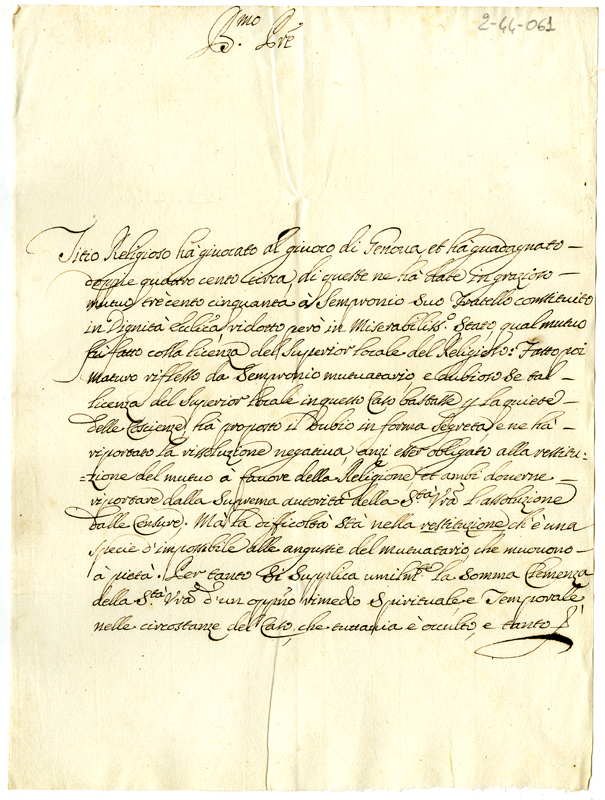 2-44-061
B.mo Pre
Titio Religioso hà giuocato al giuoco di Genova, et hà guadagnato
doppie quattro cento circa, di queste ne hà date in grazioso
mutuo trecento cinquanta a Sempronio suo fratello constituito
in Dignità Ecclica, ridotto però in Miserabiliss.o Stato, qual mutuo
fù fatto colla licenza del Superior locale del Religioso: Fatto poi
maturo riflesso da Sempronio mutuatario, e dubioso se tal
licenza del Superior locale in questo Caso bastasse p la quiete
delle Coscienze, hà proposto il Dubio in forma segreta, e ne hà
riportato la rissoluzione negativa, anzi esser obligato alla restitu=
=zione del mutuo a favore della Religione, et ambi doverne
riportare dalla Suprema autorità della S.tà Vrã l'assoluzione
dalle Censure. Mà la difficoltà stà nella restituzione ch'è una
specie d'impossibile alle angustie del mutuatario, che muovono
à pietà. Per tanto Si Supplica umilm.te la somma Clemenza
della S.tà Vrã d'un oppno rimedio Spirituale e Temporale
nelle circostanze del Caso, che tuttavia è occulto, e tanto